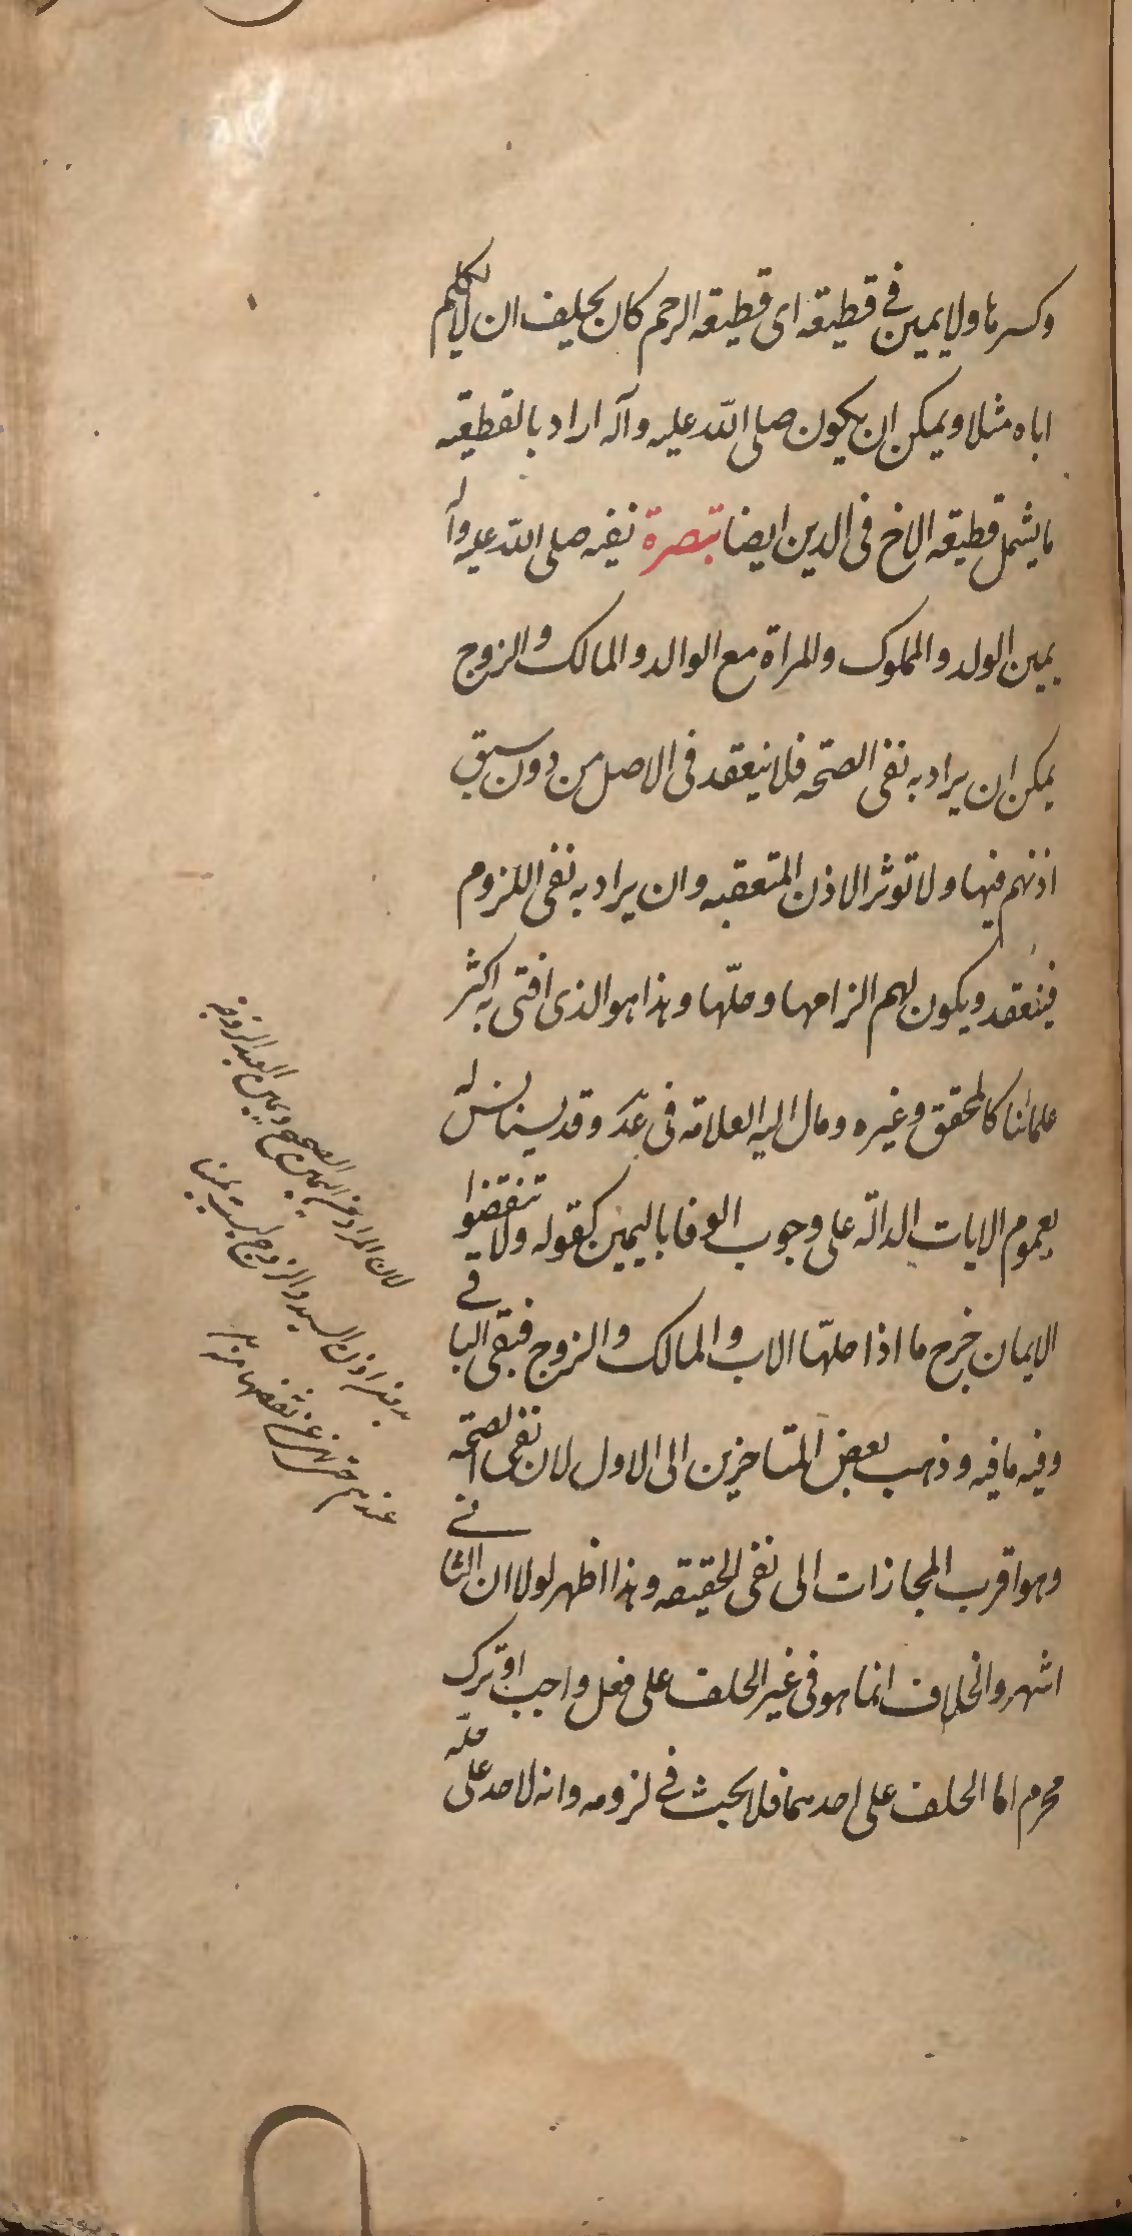 وكسرها ولا يمين في قطيعة اى قطيعة الرحم كان يحلف ان لا يكلم
اباه مثلا ويمكن ان يكون صلى الله عليه وآله اراد بالقطيعة
ما يشمل قطيعة الاخ فى الدين ايضا تبصرة نفيه صلى الله عليه وآله
يمين الولد والمملوك والمراة مع الوالد والمالك والزوج
يمكن ان يراد به نفى الصحة فلا ينعقد فى الاصل من دون سبق
اذنهم فيها ولا تؤثر الاذن المتعقبه وان يراد به نفى اللزوم
فينعقد ويكون لهم الزامها وحلّها وهذا هو الذى افتى به اكثر
علمائنا كالمحقق وغيره ومال اليه العلامة فى عد وقد يستانس له
بعموم الايات الدالة على وجوب الوفا باليمين كقوله ولا تنقضوا
الايمان خرج ما اذا حلّها الاب والمالك والزوج فبقى الباقى
وفيه ما فيه وذهب بعض المتاخرين الى الاول لان نفى الصحة
وهو اقرب المجازات الى نفى الحقيقة وهذا اظهر لولا ان الثانى
اشهر والخلاف انما هو فى غير الحلف على فعل واجب او ترك
محرم اما الحلف على احدهما فلا بحث فى لزومه وانه لا حد على حله
لان المراد من اليمين الصحيح ويمين العبد الزوجة
بدون اذن السيد والزوج ليست يمينا
عندهم حتى نهى عن نقضها منه